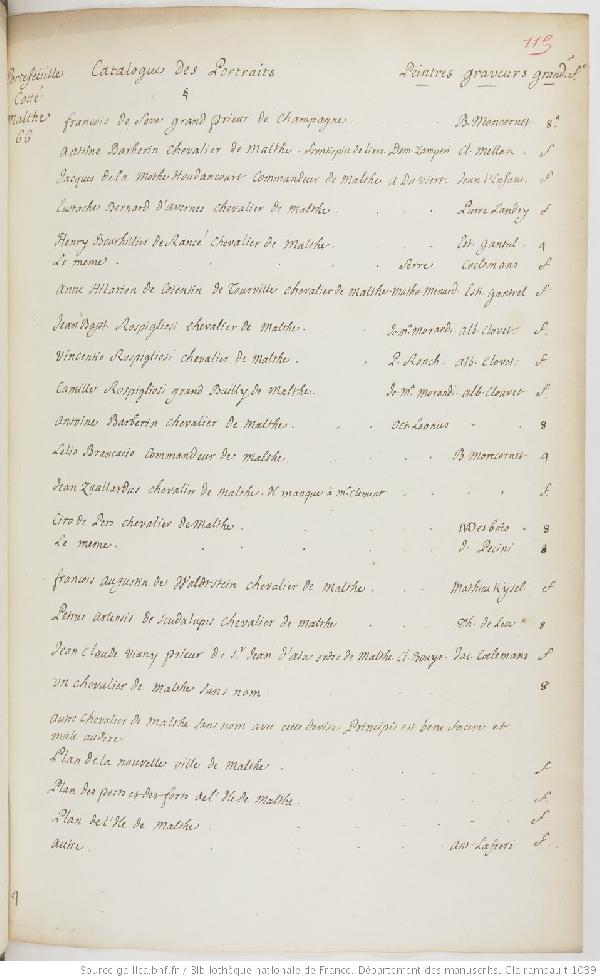 115
Portefeuille Catalogue des Portraits Peintres graveurs grandr. fo.
Cotté
Malthe
66
francois de Seve grand prieur de Champagne . . B. Moncornet 8o.
Antoine Barberin Chevalier de Malthe . frontispice de livre. Dom Zampieri Cl. Mellan . f.
Jacques de la Mothe Houdancourt Commandeur de Malthe A. Du Viert. Jean l'Enfant. f.
Eustache Bernard d'avernes chevalier de malthe . . . Pierre Landry f
Henry Bouthillier de Rancé Chevalier de Malthe . . . Est. gantrel . 4
Le meme . . . . Serre Coelemans f.
Anne Hilarion de Costentin de Tourville chevalier de malthe Mathe Menard Est. gantrel f.
Jean Bapt. Rospigliosi chevalier de malthe . . Jo. Ma. morandi alb. Clovet . f.
Vincentio Rospigliosi chevalier de malthe . . P. Ronch. alb. Clovet . f.
Camille Rospigliosi grand Bailly de malthe . Jo. Ma. morandi alb. Clouvet f.
Antoine Barberin chevalier de malthe . . . Oct. Leonus . . 8
Lelio Brancacio Commandeur de malthe . . . B Moncornet 4
Jean Zuallardus chevalier de malthe. Il manque à mr. Clement . . . . f.
Ciro de Pers chevalier de Malthe . . . . 8
Le meme . . . . . . J. Pecini 8
francois Augustin de Waldrstein chevalier de malthe . . Mathieu Kysel f
Petrus artensis de scudalupis chevalier de malthe . . Th. de Leu . 8
Jean Claude viany prieur de St. Jean d'aix ordre de Malthe Cl. Jac. Coelemans f
un chevalier de malthe sans nom . . . . . 8
autre chevalier de malthe sans nom avec cette devise Principis est bene facere et
male audire
Plan de la nouvelle ville de malthe . . . . f.
Plan des ports et des forts de l'Ile de malthe . . . . f.
Plan de l'Ile de malthe . . . . . f.
autre . . . . Ant Lafreri f.
Source gallica.bnf.fr / Bibliothèque nationale de France. Département des manuscrits. Clairambault 1039